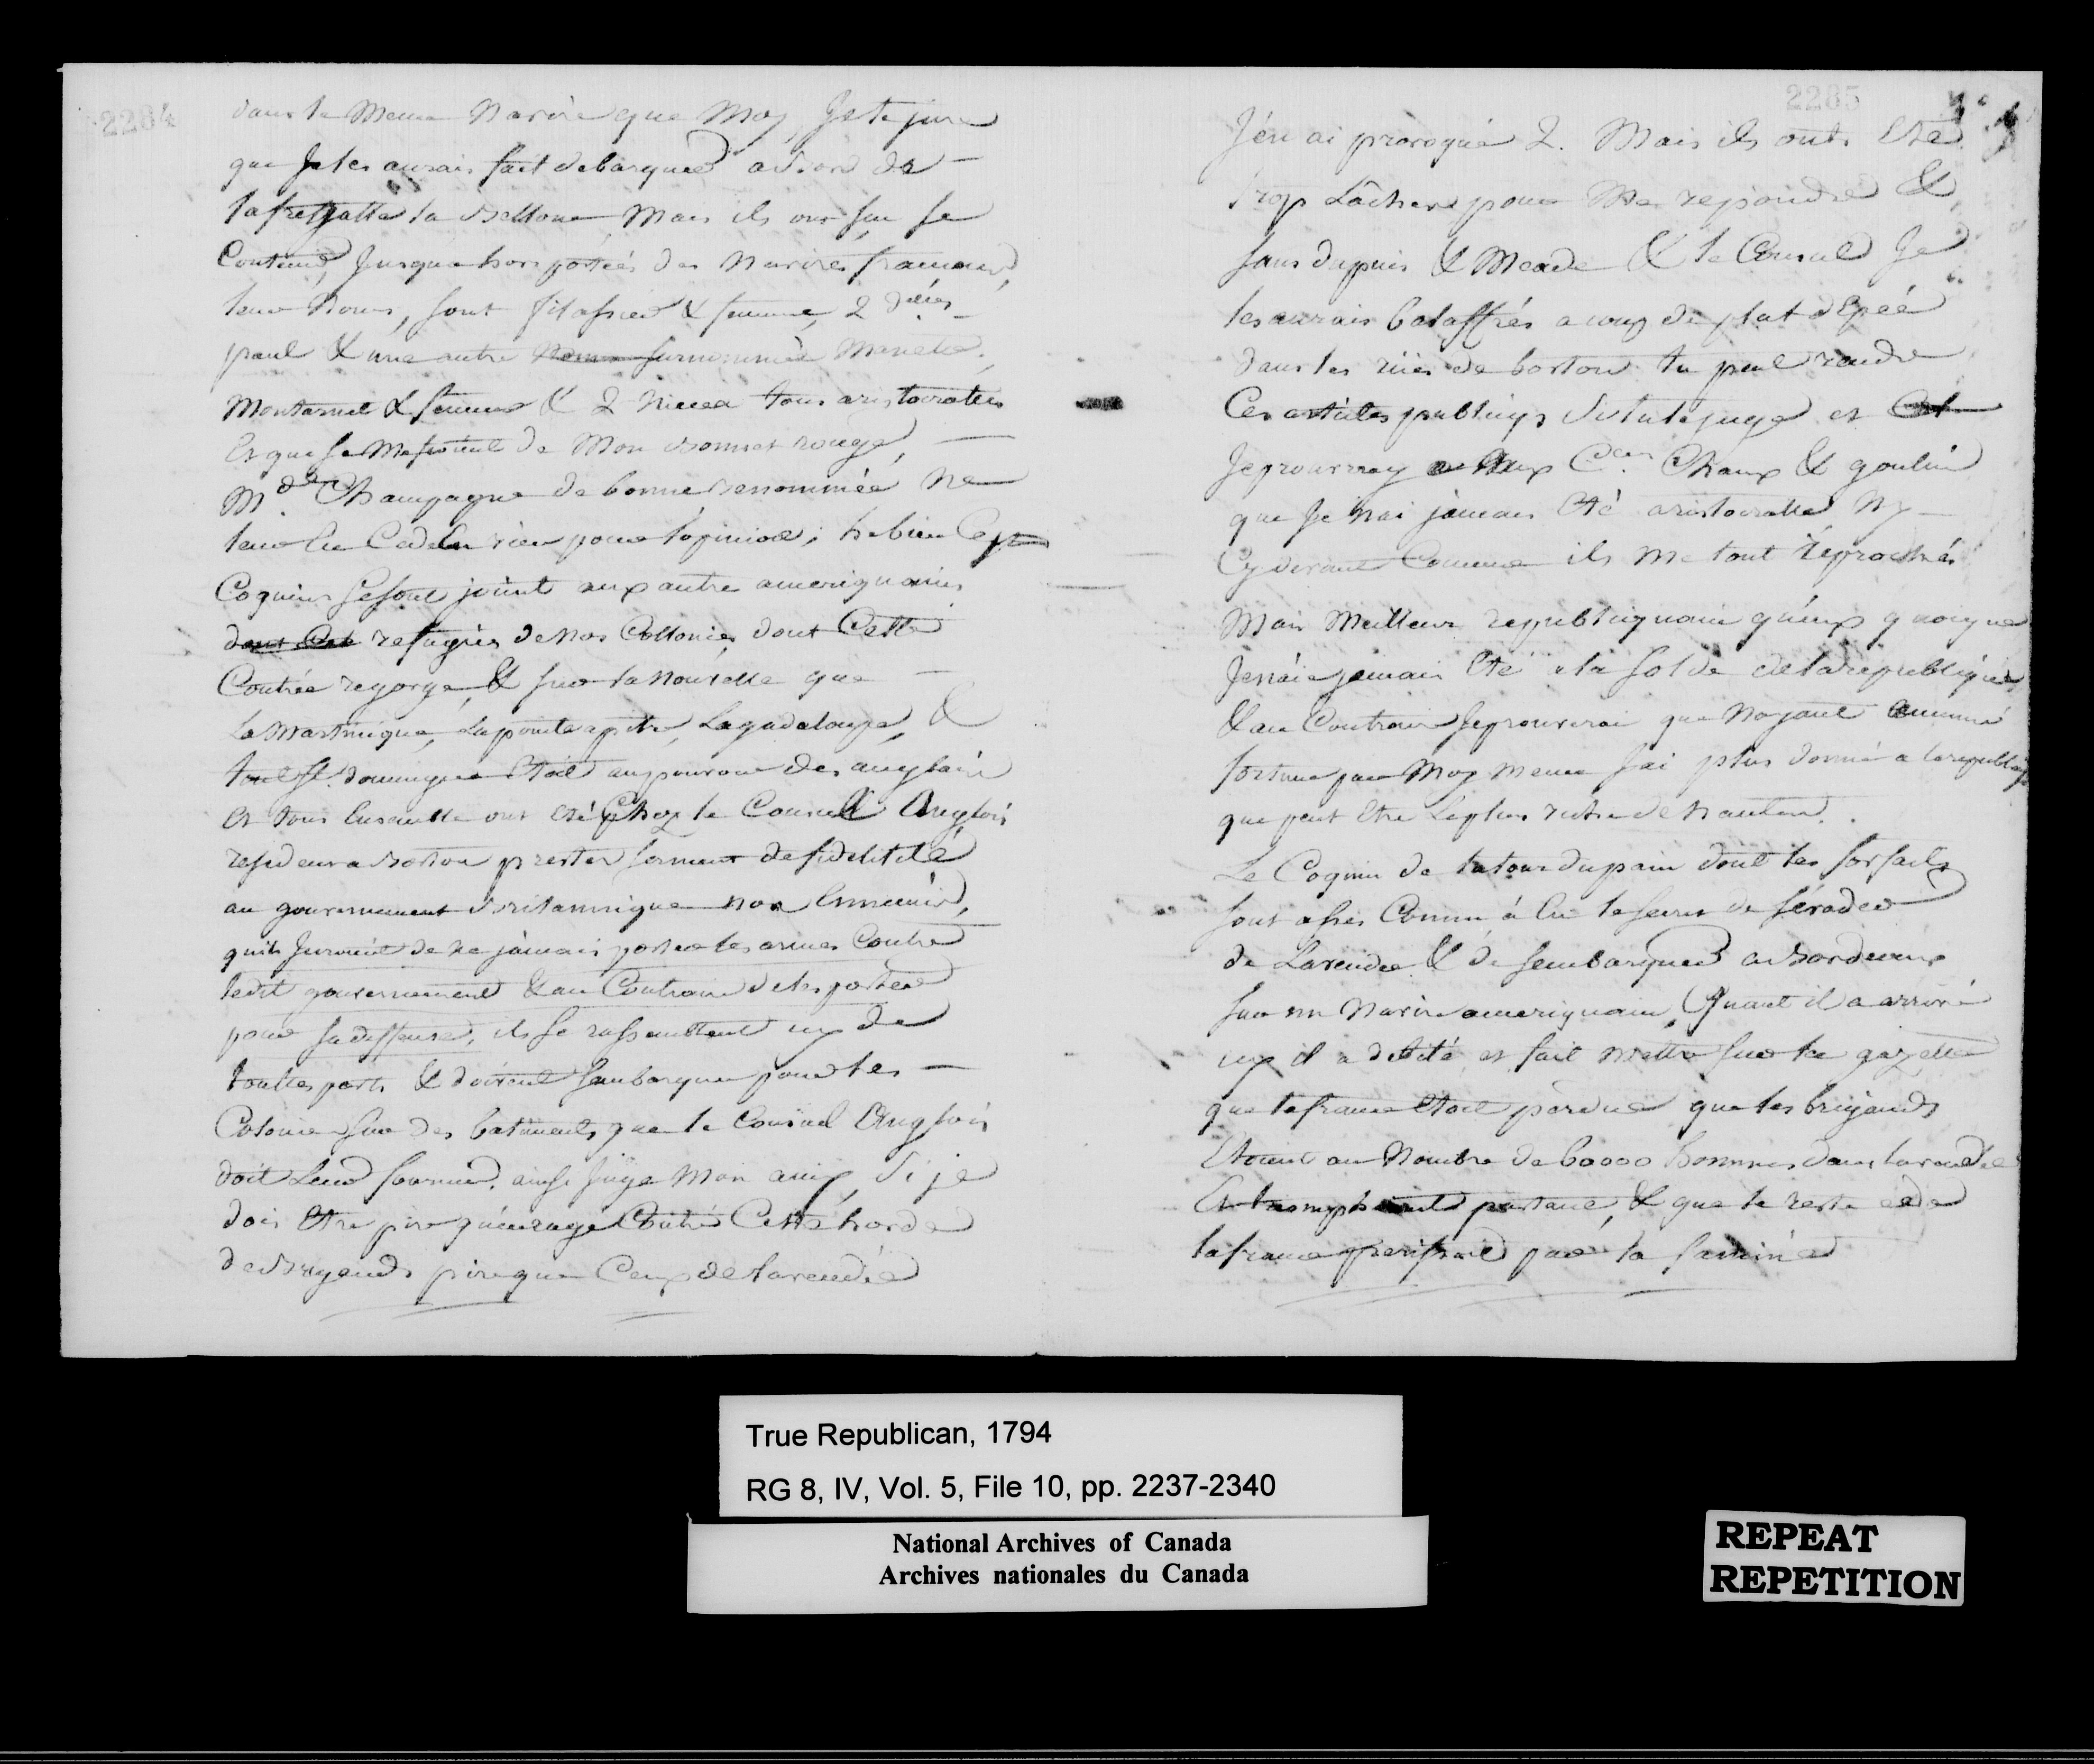 2284
dans le Meme Navire que Moy, Je te jure
que Je les aurais fait debarquer a Bord de
la fregatte la Bellone Mais ils ont su se
Contenir, Jusqua hors portées des Navires francais,
leur Noms, sont filassier & femme, 2 delles
paul & une autre surnommée Manete,
Montarnel & femme & 2 Nieces tous aristocrates
Et qui se mefioient de Mon Bonnet rouge,
Mde Champagne de bonne Renommée Ne
leur En Cedoit rien pour lopinion; he bien Ces
Coquins se sont joint aux autre ameriquains
dont Cet refugiés de Nos Collonies, dont Cette
Contrée regorge, & sur la Nouvelle que
La Martinique, La pointe apitre, La gadaloupe, &
tout St. domingue Etoit aux pouvoir des anglais
Et tous Ensemble ont été Chez le Consul Anglois
resident a Boston prester serment de fidelitté
au gouvernement Britannique nos Ennemis,
quils Juroient de ne jamais porter les armes Contre
ledit gouvernement & au Contraire de les porter
pour sa deffense, ils se rassemblent icy de
touttes parts & doivent sembarquer pour les
Colonie sur des batiments que le Consul Anglois
doit Leur fournir. ainsi juge Mon amy, Si je
dois Etre pire quenragé Contre Cette horde
de Brigands pire que Ceux de la vendée
2285
J'en ai provoqué 2. Mais ils ont Eté
trop Lâches pour Me rejoindre &
sans dupuis & Meade & le Consul Je
les aurais balaffrés a coup de plat dEpée
dans les rües de boston tu peut rendre
Ces articles publiqs Si tu le juge et Cet
Je prouverey aux Cens. Chaux & goulin
que Je Nai jamais Eté aristocratte Ny
Cy devant Comme ils me lont reprochés
Mais Meilleur republiquain quéux quoique
Je naie jamais Eté a la solde de la republique,
& au Contraire Je prouverai que Nayant aucune
fortune par Moy meme Jai plus donné a la republique
que peut Etre Le plus riche de Nantes.
Le Coquin de latour dupain dont les forfaits
sont assés Connu à Eu le secret de sévader
de La vendée & de sembarquer a Bordeaux
sur un Navire ameriquain, Quant il a arrivé
icy il a debité et fait mettre sur la gazette
que la france Etoit perdue que les brigands
Etoient au Nombre de 60000 hommes dans la vendée
Et triomphoient partout, & que le reste de
la france perissoit par la famine
True Republican, 1794
RG 8, IV, Vol. 5, File 10, pp. 2237-2340
National Archives of Canada
Archives nationales du Canada
REPEAT
REPETITION